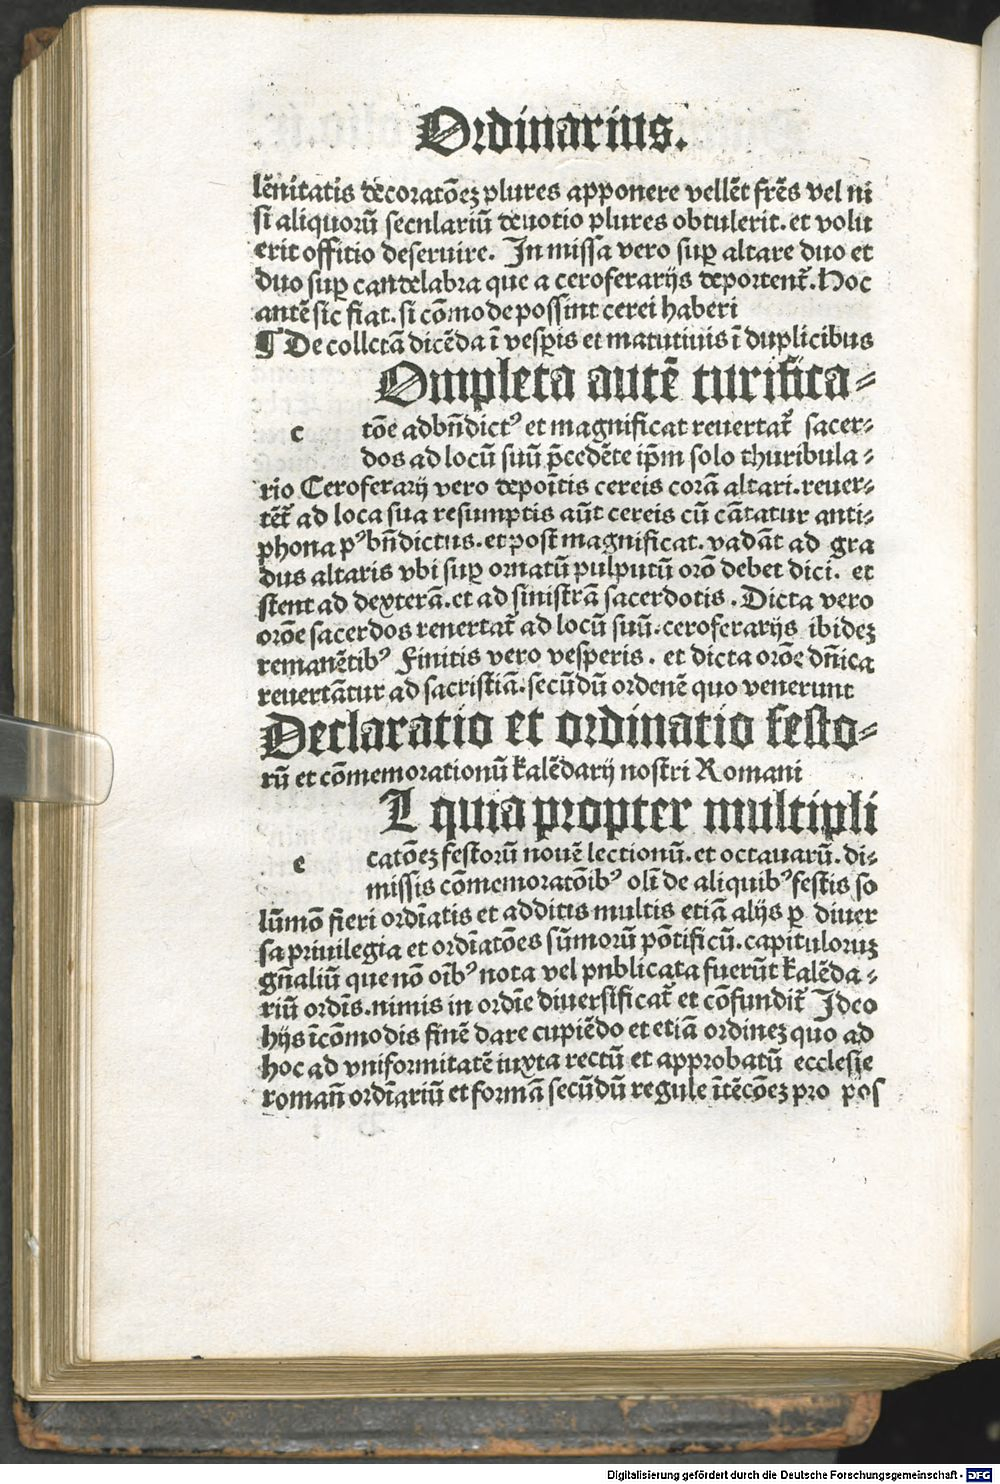 Ordinarius.
lēnitatis decoratōez plures apponere vellēt frēs vel ni
si aliquorū secnlariū deuotio plures obtulerit. et volu
erit offitio deseruire. In missa vero sup altare duo et
duo sup candelabra que a ceroferarijs deportent̄. Hoc
antē sic fiat. si cōmode possint cerei haberi
¶ De collctā dicēda ī vespis et matutinis ī duplicibus
Ompleta autē turifica⸗
c tōe adbn̄dictꝰ et magnificat reuertat̄ sacer⸗
dos ad locū suū p̄cedēte ip̄m solo thuribula⸗
rio Ceroferarij vero depoītis cereis corā altari. reuer⸗
tēt̄ ad loca sua resumptis aūt cereis cū cātatur anti⸗
phona pꝰ bn̄dictus. et post magnificat. vadāt ad gra
dus altaris vbi sup ornatū pulputū orō debet dici. et
stent ad dexterā. et ad sinistrā sacerdotis. Dicta vero
orōe sacerdos renertat̄ ad locū suū. ceroferarijs ibidez
remanētibꝰ Finitis vero vesperis. et dicta orōe dn̄ica
reuertātur ad sacristiā. secūdū ordenē quo venerunt
Declaratio et ordinatio festo⸗
rū et cōmemorationū kalēdarij nostri Romani
T quia propter multipli
e catōez festorū nouē lectionū. et octauarū. di⸗
missis cōmemoratōibꝰ olī de aliquibꝰ festis so
lūmō fieri ordīatis et additis multis etiā alijs p diuer
sa priuilegia et ordīatōes sūmorū pōtificū. capituloruz
gn̄aliū que nō oībꝰ nota vel pnblicata fuerūt kalēda⸗
riū ordīs. nimis in ordīe diuersificat̄ et cōfundit̄ Ideo
hijs īcōmodis finē dare cupiēdo et etiā ordinez quo ad
hoc ad vniformitatē iuxta rectū et approbatū ecclesie
roman̄ ordīariū et formā secūdū regule ītēcōez pro pos
Digitalisierung gefördert durch die Deutsche Forschungsgemeinschaft - DFG